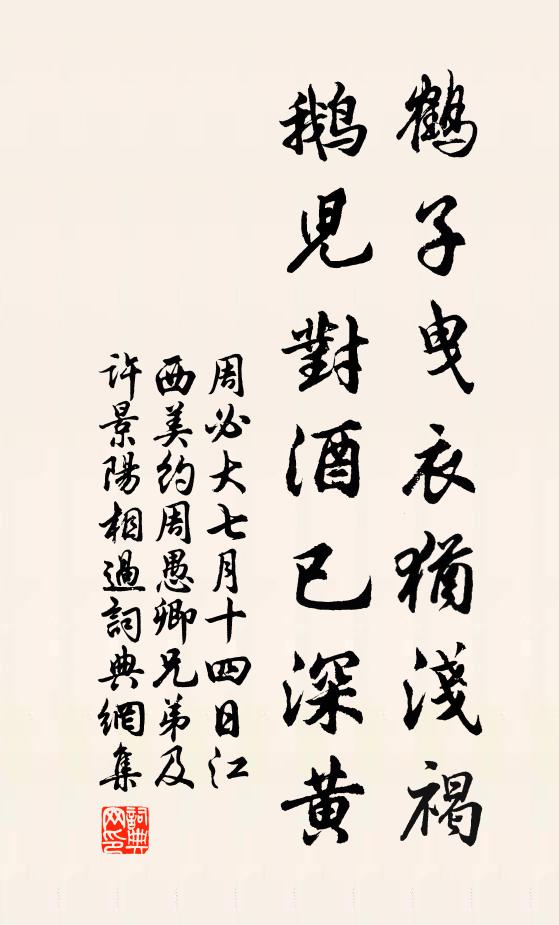 鶴子曳衣猶淺褐
鵝兒對酒已深黃
周必大七月十四日江
西美約周愚卿兄弟及
許景陽相過詞典網集
詞典網印